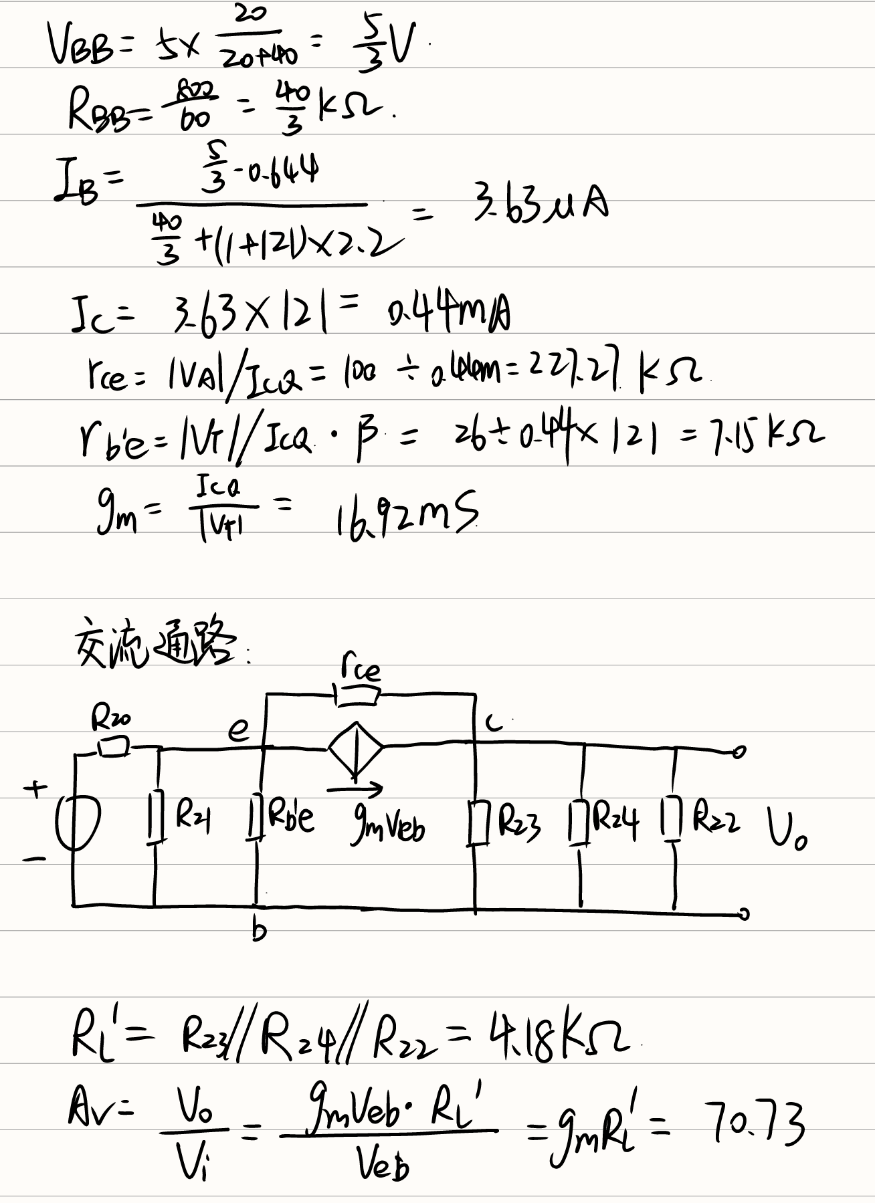 V_BB = 5 × 20/(20+40) = 5/3 V.
R_BB = 800/60 = 40/3 kΩ.
I_B = (5/3 - 0.644)/(40/3 + (1+121)×2.2) = 3.63 μA
I_C = 3.63 × 121 = 0.44mA
r_ce = |V_A|/I_CQ = 100 ÷ 0.44m = 227.27 kΩ
r_b'e = |V_T|/I_CQ · β = 26 ÷ 0.44 × 121 = 7.15 kΩ
g_m = I_CQ/|V_T| = 16.92 mS
交流通路:
r_ce
R_20
e
c
+
R_21
R_b'e
g_mV_eb
R_23
R_24
R_22
U_o
-
b
R_L' = R_23//R_24//R_22 = 4.18KΩ
A_V = V_o/V_i = g_mV_eb·R_L'/V_eb = g_mR_L' = 70.73